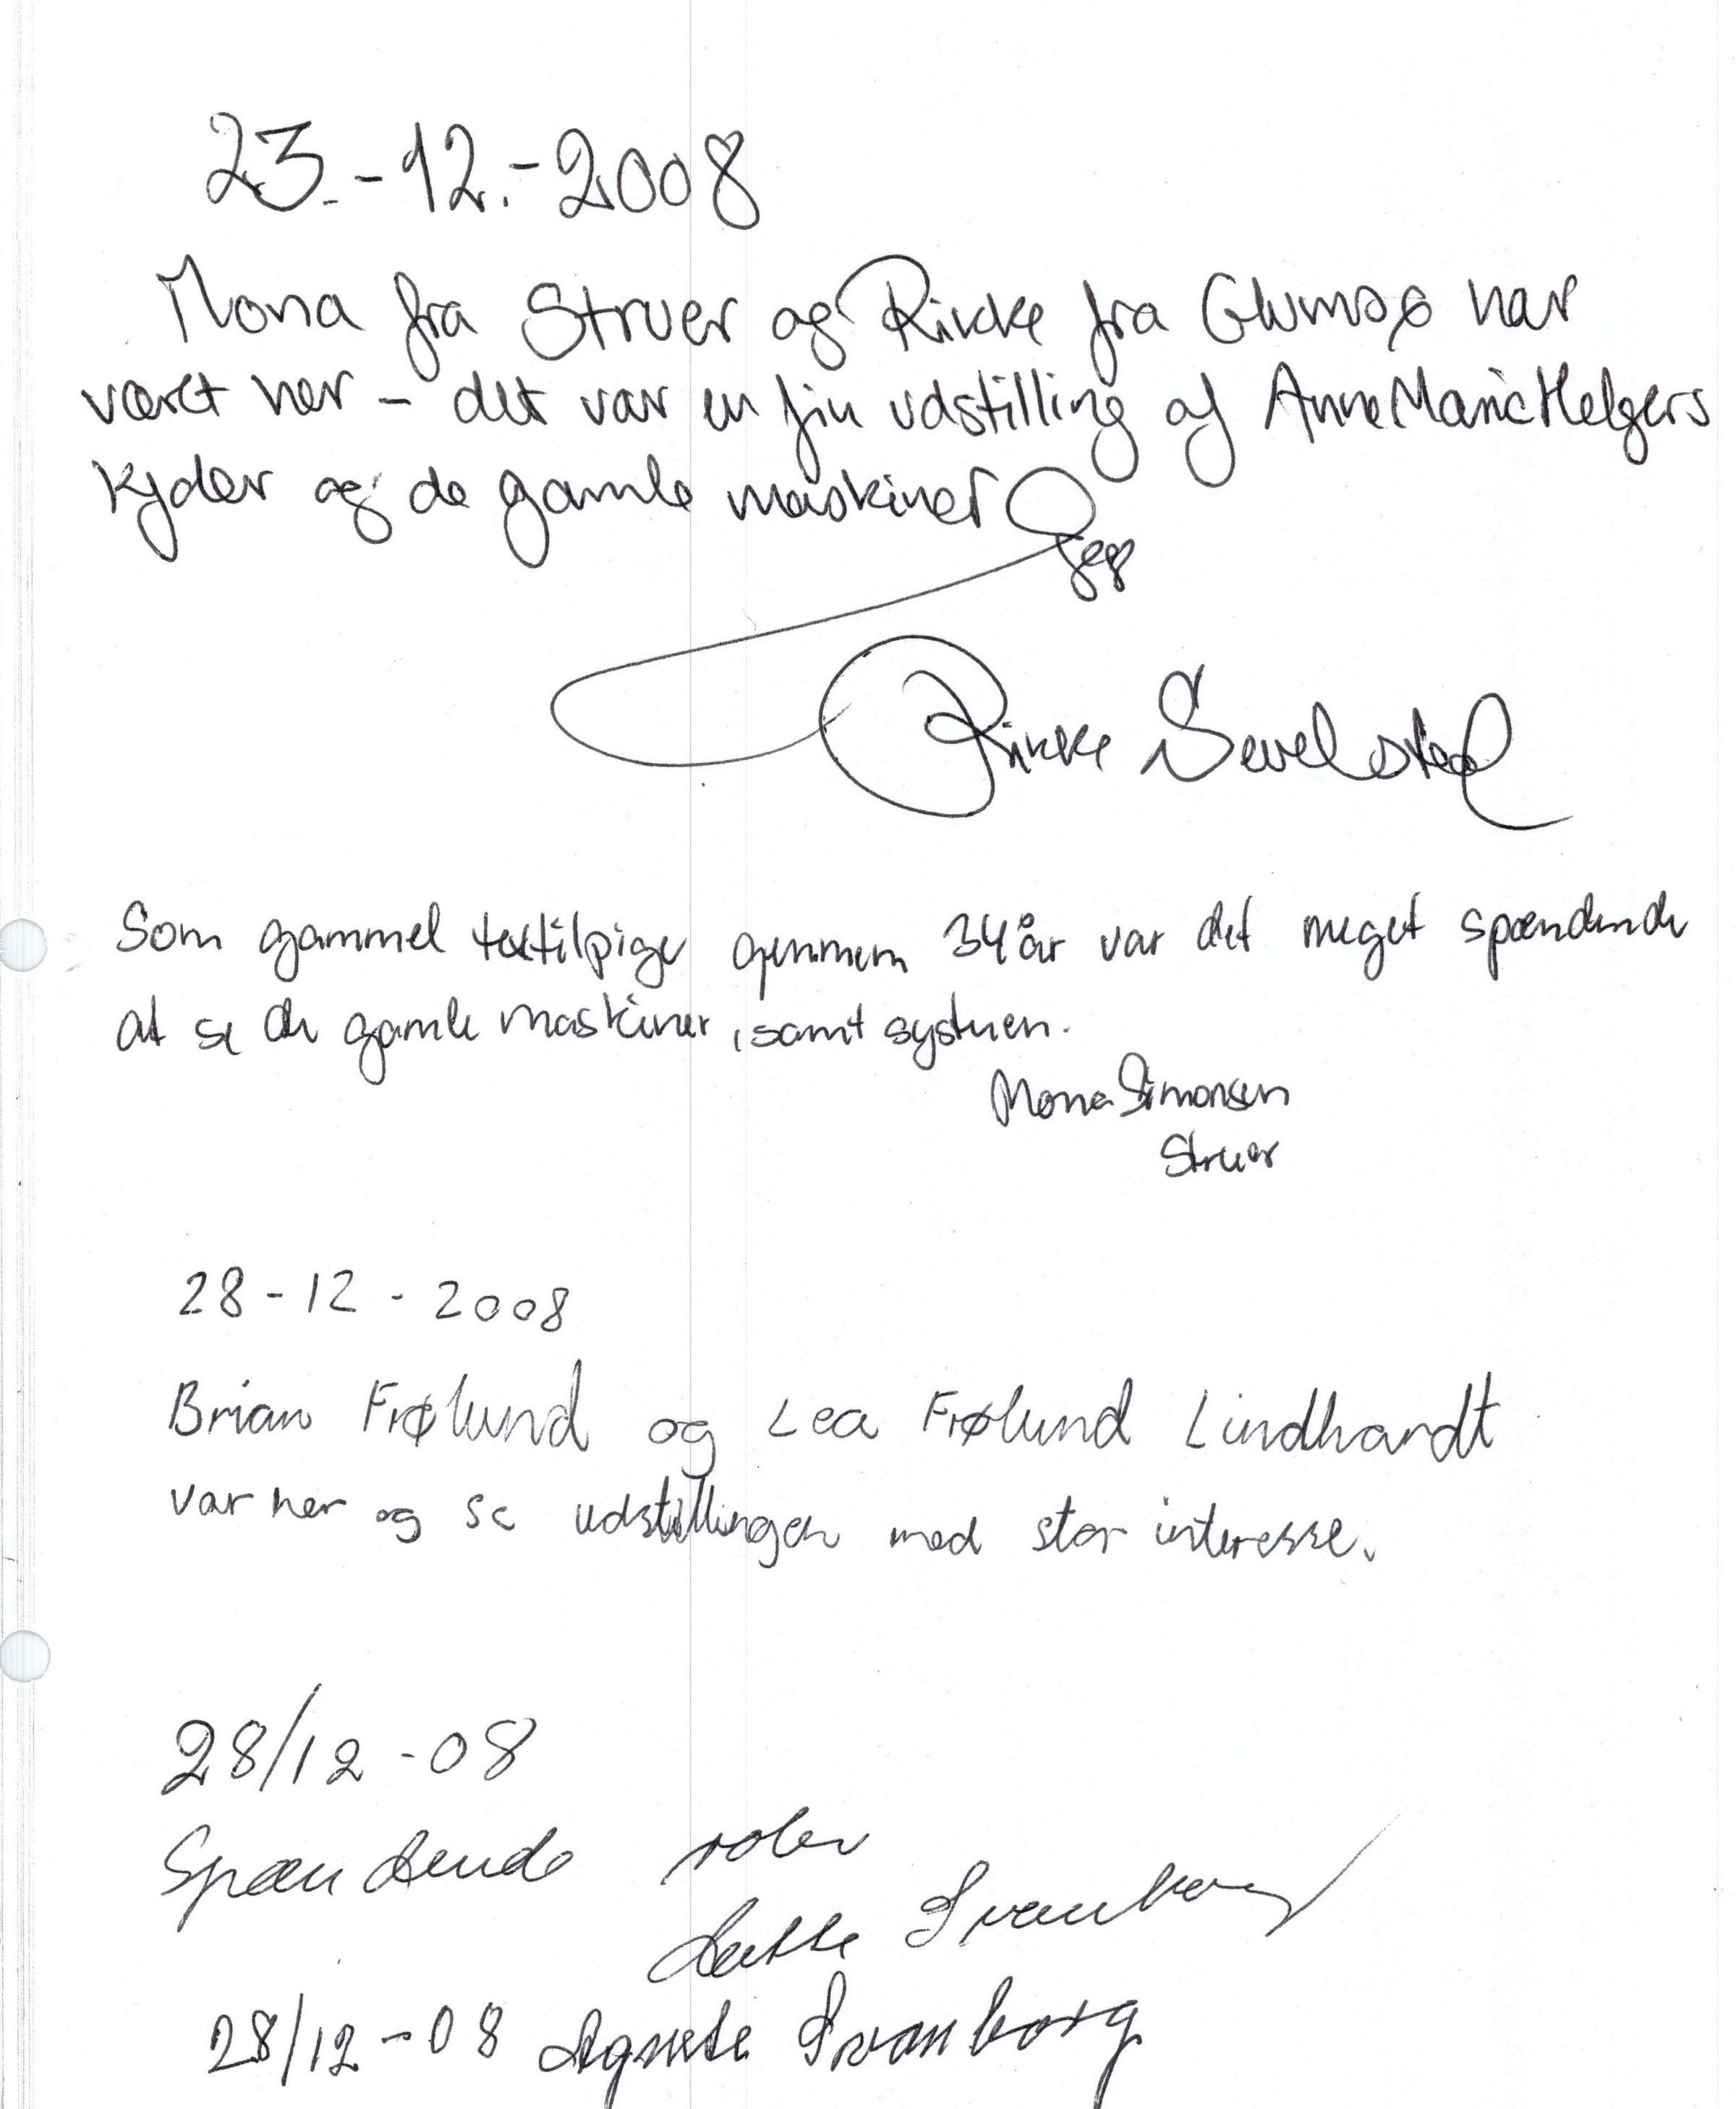 23.-12.-2008
Mona fra Struer og Rikke fra Glumsø har
været her – det var en fin udstilling af Anne Marie Helgers
kjoler og de gamle maskiner
Rikke Sevelsted
Som gammel textilpige gennem 34 år var det meget spændende
at se de gamle maskiner, samt systuen.
Mona Simonsen
Struer
28-12-2008
Brian Frølund og Lea Frølund Lindhardt
var her og se udstillingen med stor interesse.
28/12-08
Spændende
Svanborg
28/12-08 Agnete Svanborg